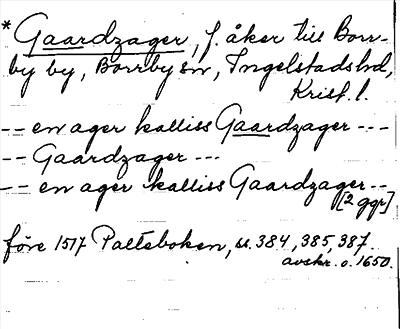 * Gaardzager, f. åker till Borr-
by by, Borrby sn, Ingelstads hd,
Krist. l.
-- en ager kalliss Gaardzager ---
-- Gaardzager ---
-- en ager kalliss Gaardzager --
[2 ggr]
före 1517 Palteboken, ss. 384, 385, 387.
avskr. o. 1650.